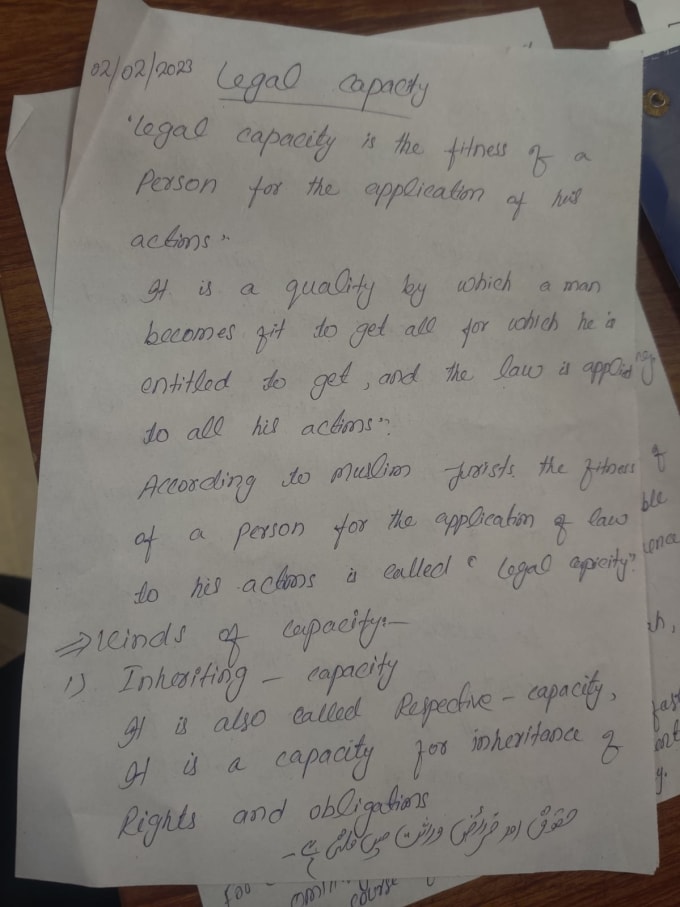 02/02/2023 Legal capacity
"Legal capacity is the fitness of a
Person for the application of his
actions"
It is a quality by which a man
becomes fit to get all for which he is
entitled to get, and the law is applied
to all his actions".
According to Muslim Jurists the fitness
of a person for the application of law
to his actions is called "Legal capicity"
⇒ Kinds of capacity:—
1) Inheriting - capacity
It is also called Respective - capacity,
It is a capacity for inheritance of
Rights and obligations
حقوق اور فرائض وراثت میں ملتی ہے -
ble
course